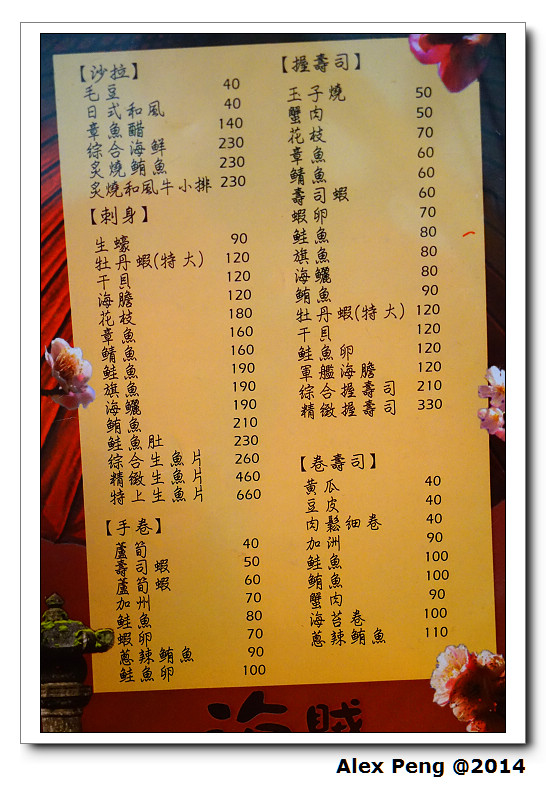 【沙拉】
毛豆 40
日式和風 40
章魚醋 140
綜合海鮮 230
炙燒鮪魚 230
炙燒和風牛小排 230
【刺身】
生蠔 90
牡丹蝦(特大) 120
干貝 120
海膽 120
花枝 180
章魚 160
鯖魚 160
鮭魚 190
旗魚 190
海鱺 190
鮪魚 210
鮭魚肚 230
綜合生魚片 260
精緻生魚片 460
特上生魚片 660
【手卷】
蘆筍 40
壽司蝦 50
蘆筍蝦 60
加州 70
鮭魚 80
蝦卵 70
蔥辣鮪魚 90
鮭魚卵 100
【握壽司】
玉子燒 50
蟹肉 50
花枝 70
章魚 60
鯖魚 60
壽司蝦 60
蝦卵 70
鮭魚 80
旗魚 80
海鱺 80
鮪魚 90
牡丹蝦(特大) 120
干貝 120
鮭魚卵 120
軍艦海膽 120
綜合握壽司 210
精緻握壽司 330
【卷壽司】
黃瓜 40
豆皮 40
肉鬆細卷 40
加洲 90
鮭魚 100
鮪魚 100
蟹肉 90
海苔卷 100
蔥辣鮪魚 110
Alex Peng @2014